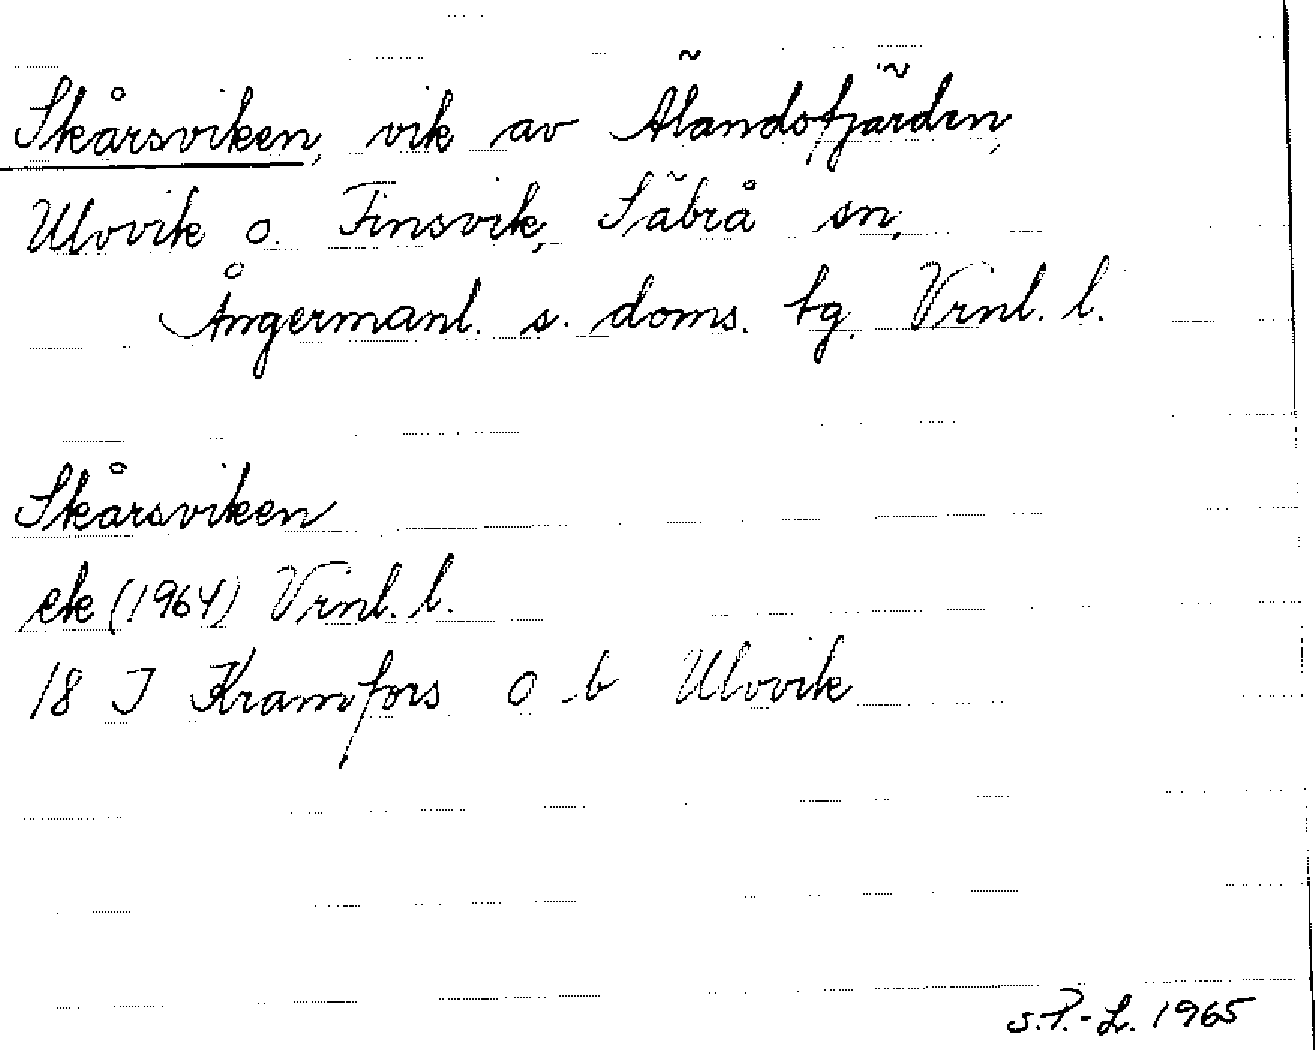 Skårsviken, vik av Älandsfjärden,
Ulvvik o. Finsvik, Säbrå sn,
Ångermanl. s. doms. tg. Vrnl. l.
Skårsviken
ek (1964) Vrnl. l.
18 J Kramfors O b Ulvvik
S.P.-L. 1965